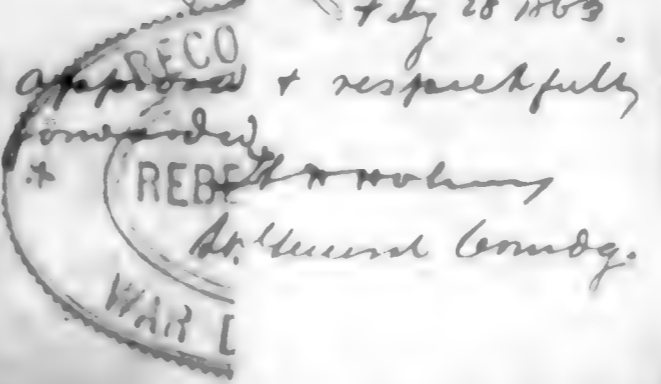 Feby 28 1863
approved & respectfully
forwarded
Th H Holmes
Lt. General Comdg.
RECO
REBE
WAR D